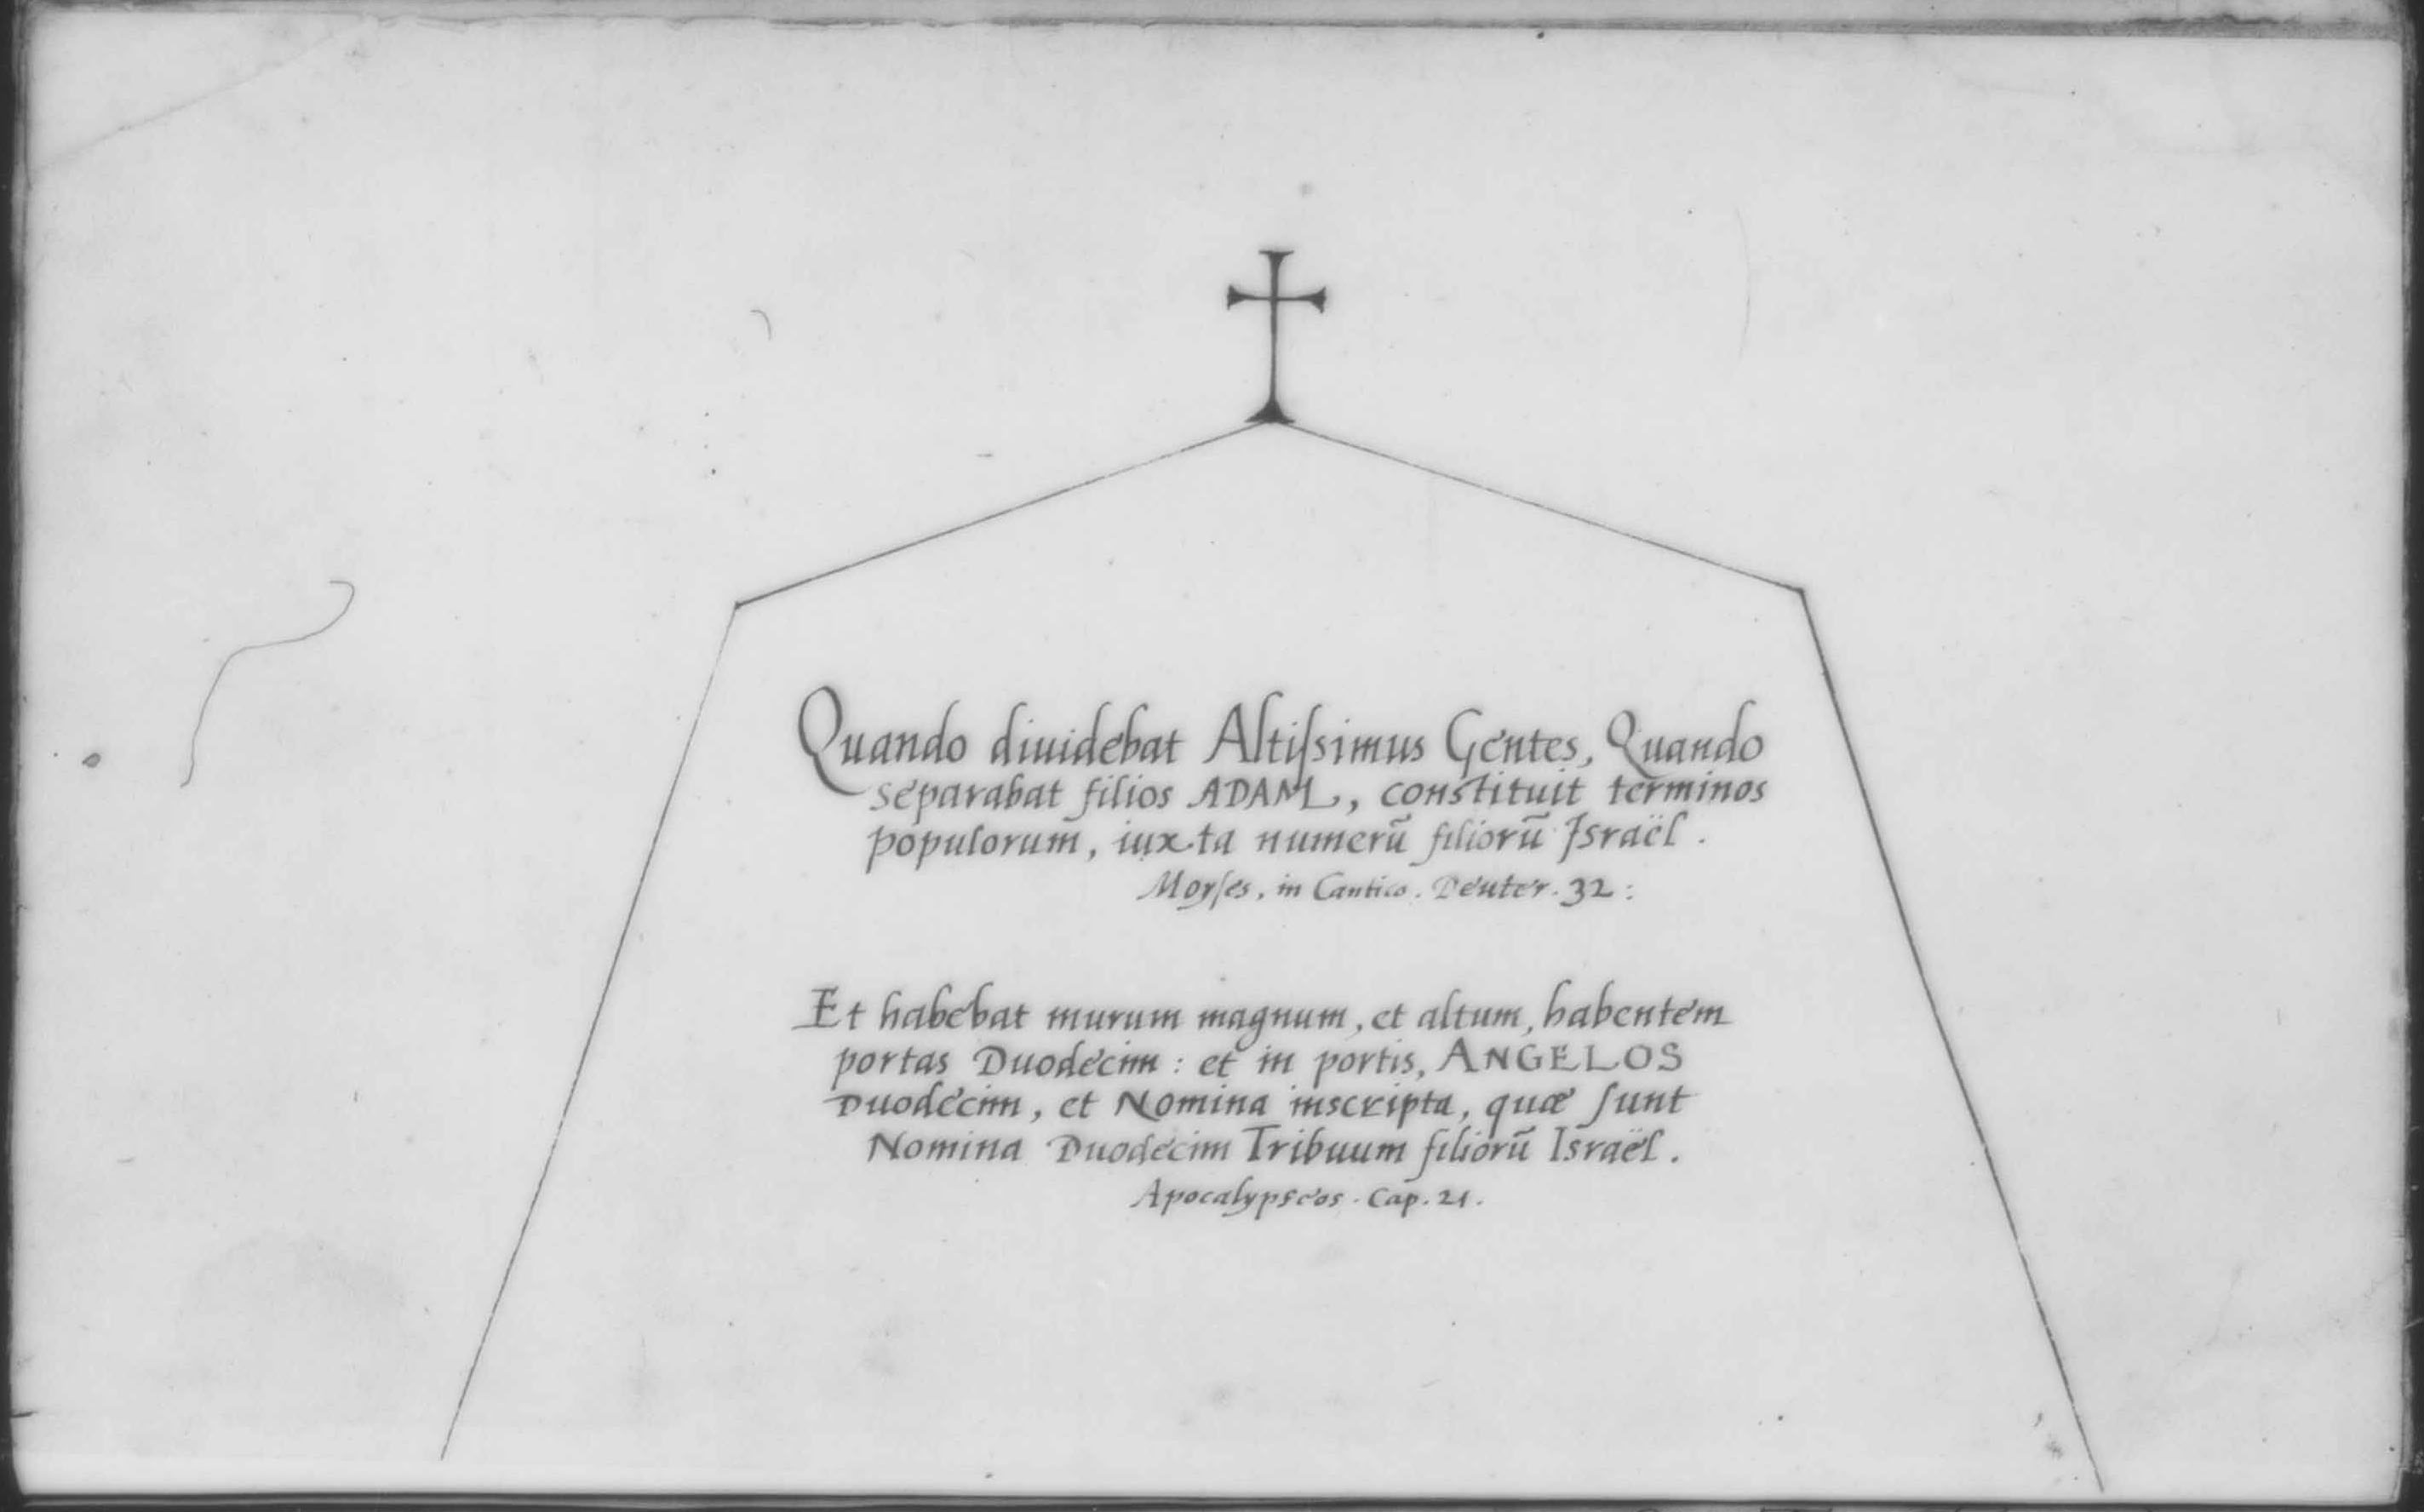 Quando diuidebat Altiſsimus Gentes, Quando
separabat filios ADAM, constituit terminos
populorum, iuxta numerū filiorū Israël.
Moyſes, in Cantico. Deuter. 32:
Et habebat murum magnum, et altum, habentem
portas Duodecim: et in portis, ANGELOS
Duodecim, et Nomina inscripta, quæ ſunt
Nomina Duodecim Tribuum filiorū Israël.
Apocalypseos. Cap. 21.